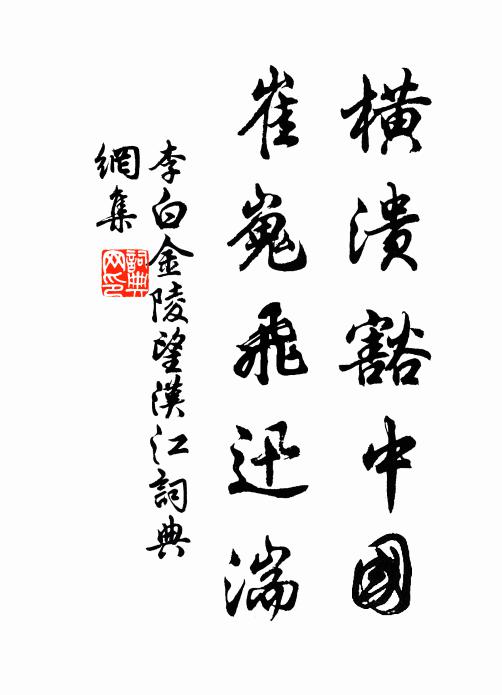 橫潰豁中國
崔嵬飛迅湍
李白金陵望漢江詞典
網集
詞典
网印